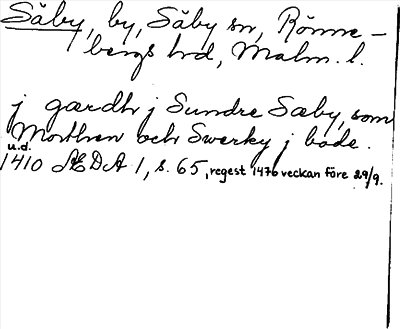 Säby, by, Säby sn, Rönne-
bergs hrd, Malm. l.
j gardh j Sundre Sæby, som
Morthen och Swerky j bode.
u.d.
1410 ÆDA 1, s. 65, regest 1476 veckan före 29/9.